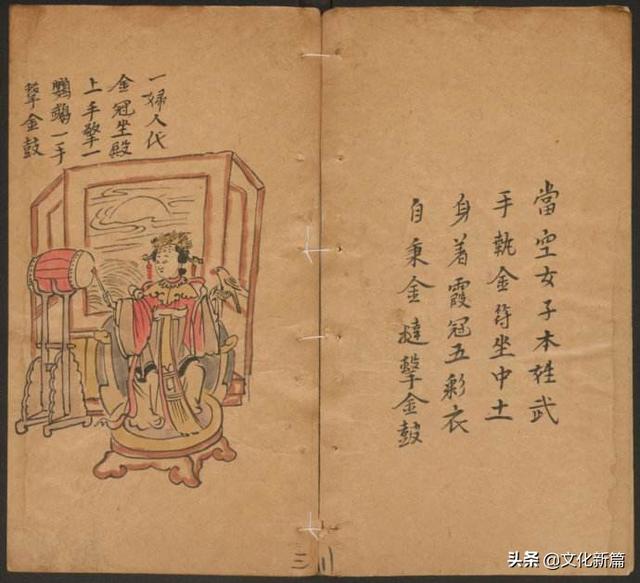 當空女子本姓武
手執金符坐中土
身着霞冠五彩衣
自秉金撻擊金鼓
一婦人代
金冠坐殿
上手擎一
鸚鵡一手
擊金鼓
三
头条 @文化新篇